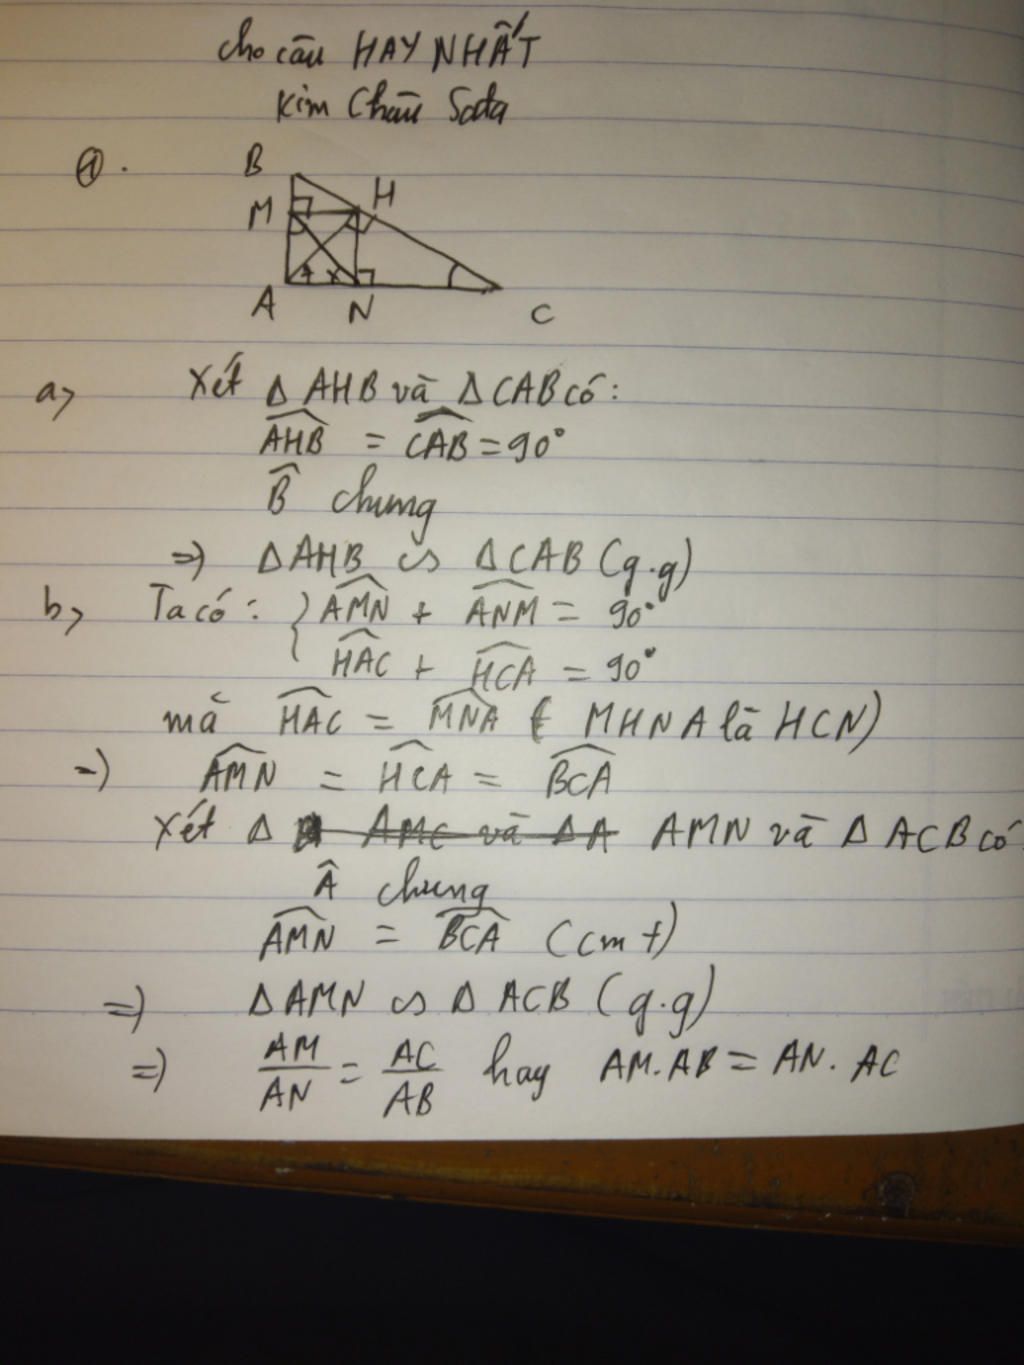 cho câu HAY NHẤT
Kim Châu Soda
①.
B
M H
A N C
a, Xét Δ AHB và Δ CAB có:
AHB = CAB = 90°
B̂ chung
=> Δ AHB ∽ Δ CAB (g.g)
b, Ta có: { AMN + ANM = 90°
HAC + HCA = 90°
mà HAC = MNA ( MHNA là HCN)
=> AMN = HCA = BCA
Xét Δ AMC và Δ A AMN và Δ ACB có
Â chung
AMN = BCA (cmt)
=> Δ AMN ∽ Δ ACB (g.g)
=> AM/AN = AC/AB hay AM.AB = AN.AC